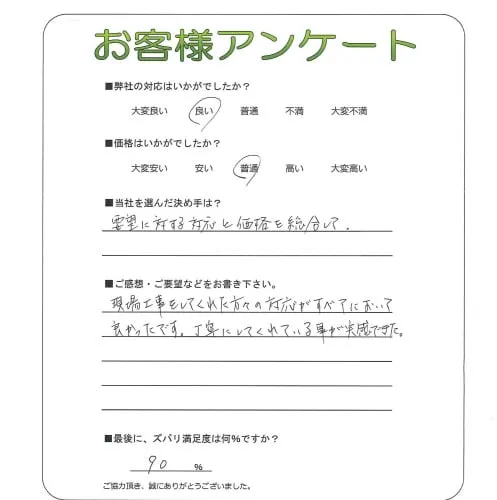 お客様アンケート
■弊社の対応はいかがでしたか？
大変良い 良い 普通 不満 大変不満
■価格はいかがでしたか？
大変安い 安い 普通 高い 大変高い
■当社を選んだ決め手は？
要望に対する対応と価格を総合して.
■ご感想・ご要望などをお書き下さい。
現場工事をしてくれた方々の対応がすべてにおいて
良かったです。丁寧にしてくれている事が実感できた。
■最後に、ズバリ満足度は何％ですか？
90 ％
ご協力頂き、誠にありがとうございました。